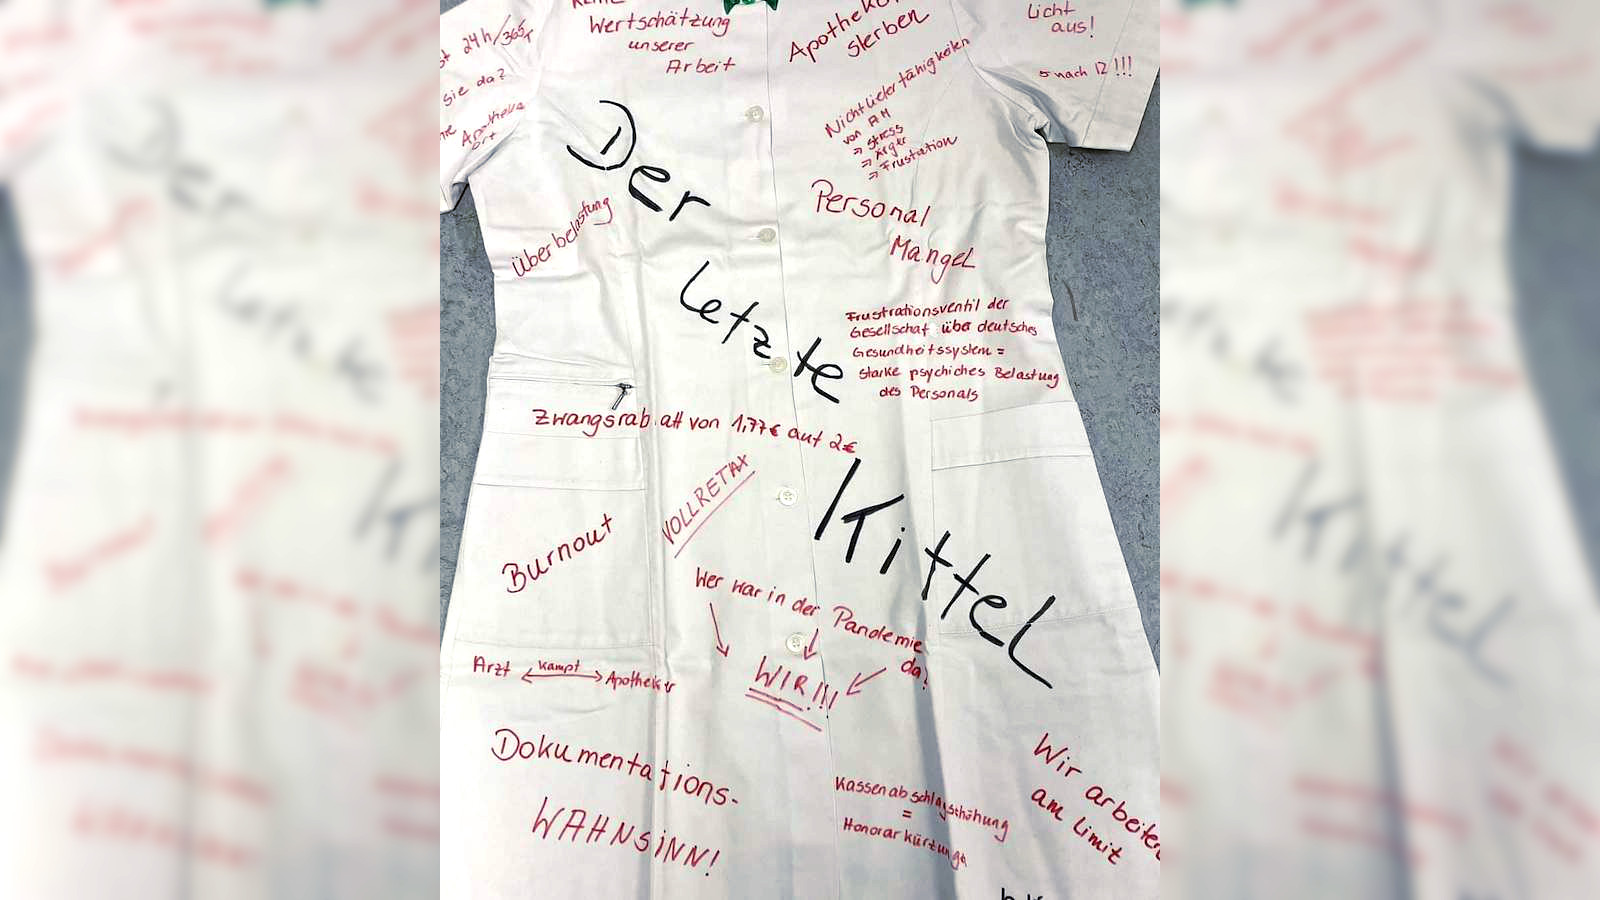 24h/365T
sie da?
Apotheke
Ort
Wertschätzung
unserer
Arbeit
sterben
Licht
aus!
5 nach 12!!!
Nichtlieferfähigkeiten
von AM
⇒ Stress
⇒ Ärger
⇒ Frustation
Der
letzte
Kittel
Überbelastung
Personal
Mangel
Frustrationsventil der
Gesellschaft über deutsches
Gesundheitssystem =
starke psychiches Belastung
des Personals
Zwangsrabatt von 1,77€ auf 2€
VOLLRETAX
Burnout
Wer war in der Pandemie
da?
WIR!!!
Arzt Kampf Apotheker
Dokumentations-
WAHNSiNN!
Kassenabschlagserhöhung
=
Honorarkürzung
Wir arbeiten
am Limit